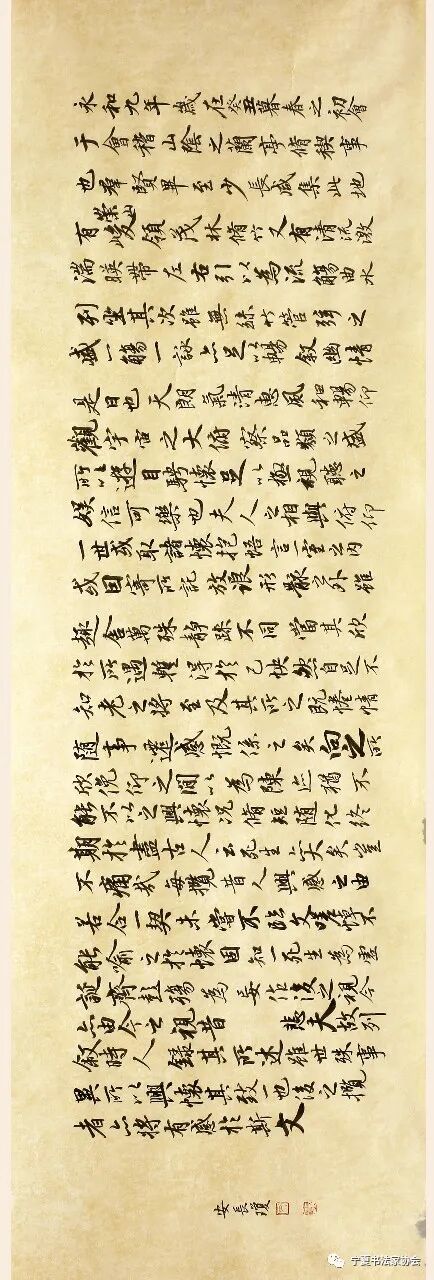 永和九年歲在癸丑暮春之初會
于會稽山陰之蘭亭脩稧事
也羣賢畢至少長咸集此地
有崇山峻領茂林脩竹又有清流激
湍暎帶左右引以為流觴曲水
列坐其次雖無絲竹管弦之
盛一觴一詠亦足以暢敘幽情
是日也天朗氣清惠風和暢仰
觀宇宙之大俯察品類之盛
所以遊目騁懷足以極視聽之
娛信可樂也夫人之相與俯仰
一世或取諸懷抱悟言一室之內
或因寄所託放浪形骸之外雖
趣舍萬殊靜躁不同當其欣
於所遇暫得於己怏然自足不
知老之將至及其所之既惓情
随事遷感慨係之矣向之所
欣俛仰之間以為陳迹猶不
能不以之興懷況脩短随化終
期於盡古人云死生亦大矣豈
不痛哉每攬昔人興感之由
若合一契未嘗不臨文嗟悼不
能喻之於懷固知一死生為虛
誕齊彭殤為妄作後之視今
亦由今之視昔 悲夫故列
敘時人錄其所述雖世殊事
異所以興懷其致也後之攬
者亦將有感於斯文
安長瓊
宁夏书法家协会